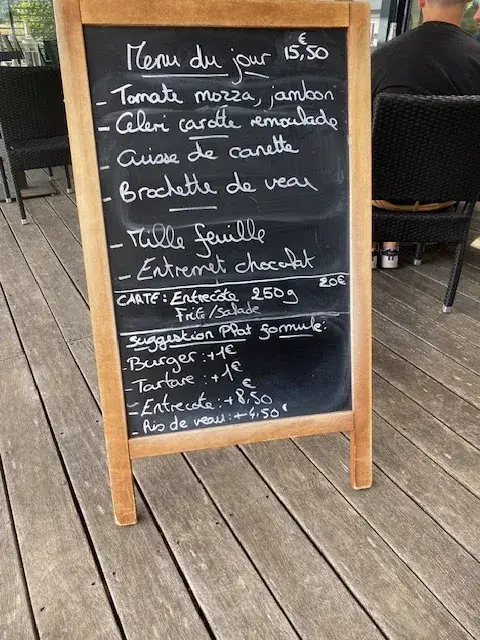 Menu du jour 15,50€
- Tomate mozza, jambon
- Celeri carotte remoulade
- Cuisse de canette
- Brochette de veau
- Mille feuille
- Entremet chocolat
CARTE : Entrecôte 250g 20€
Frite/Salade
Suggestion Plat formule :
- Burger : +1€
- Tartare : +1€
- Entrecote : +8,50€
- Ris de veau : +4,50€